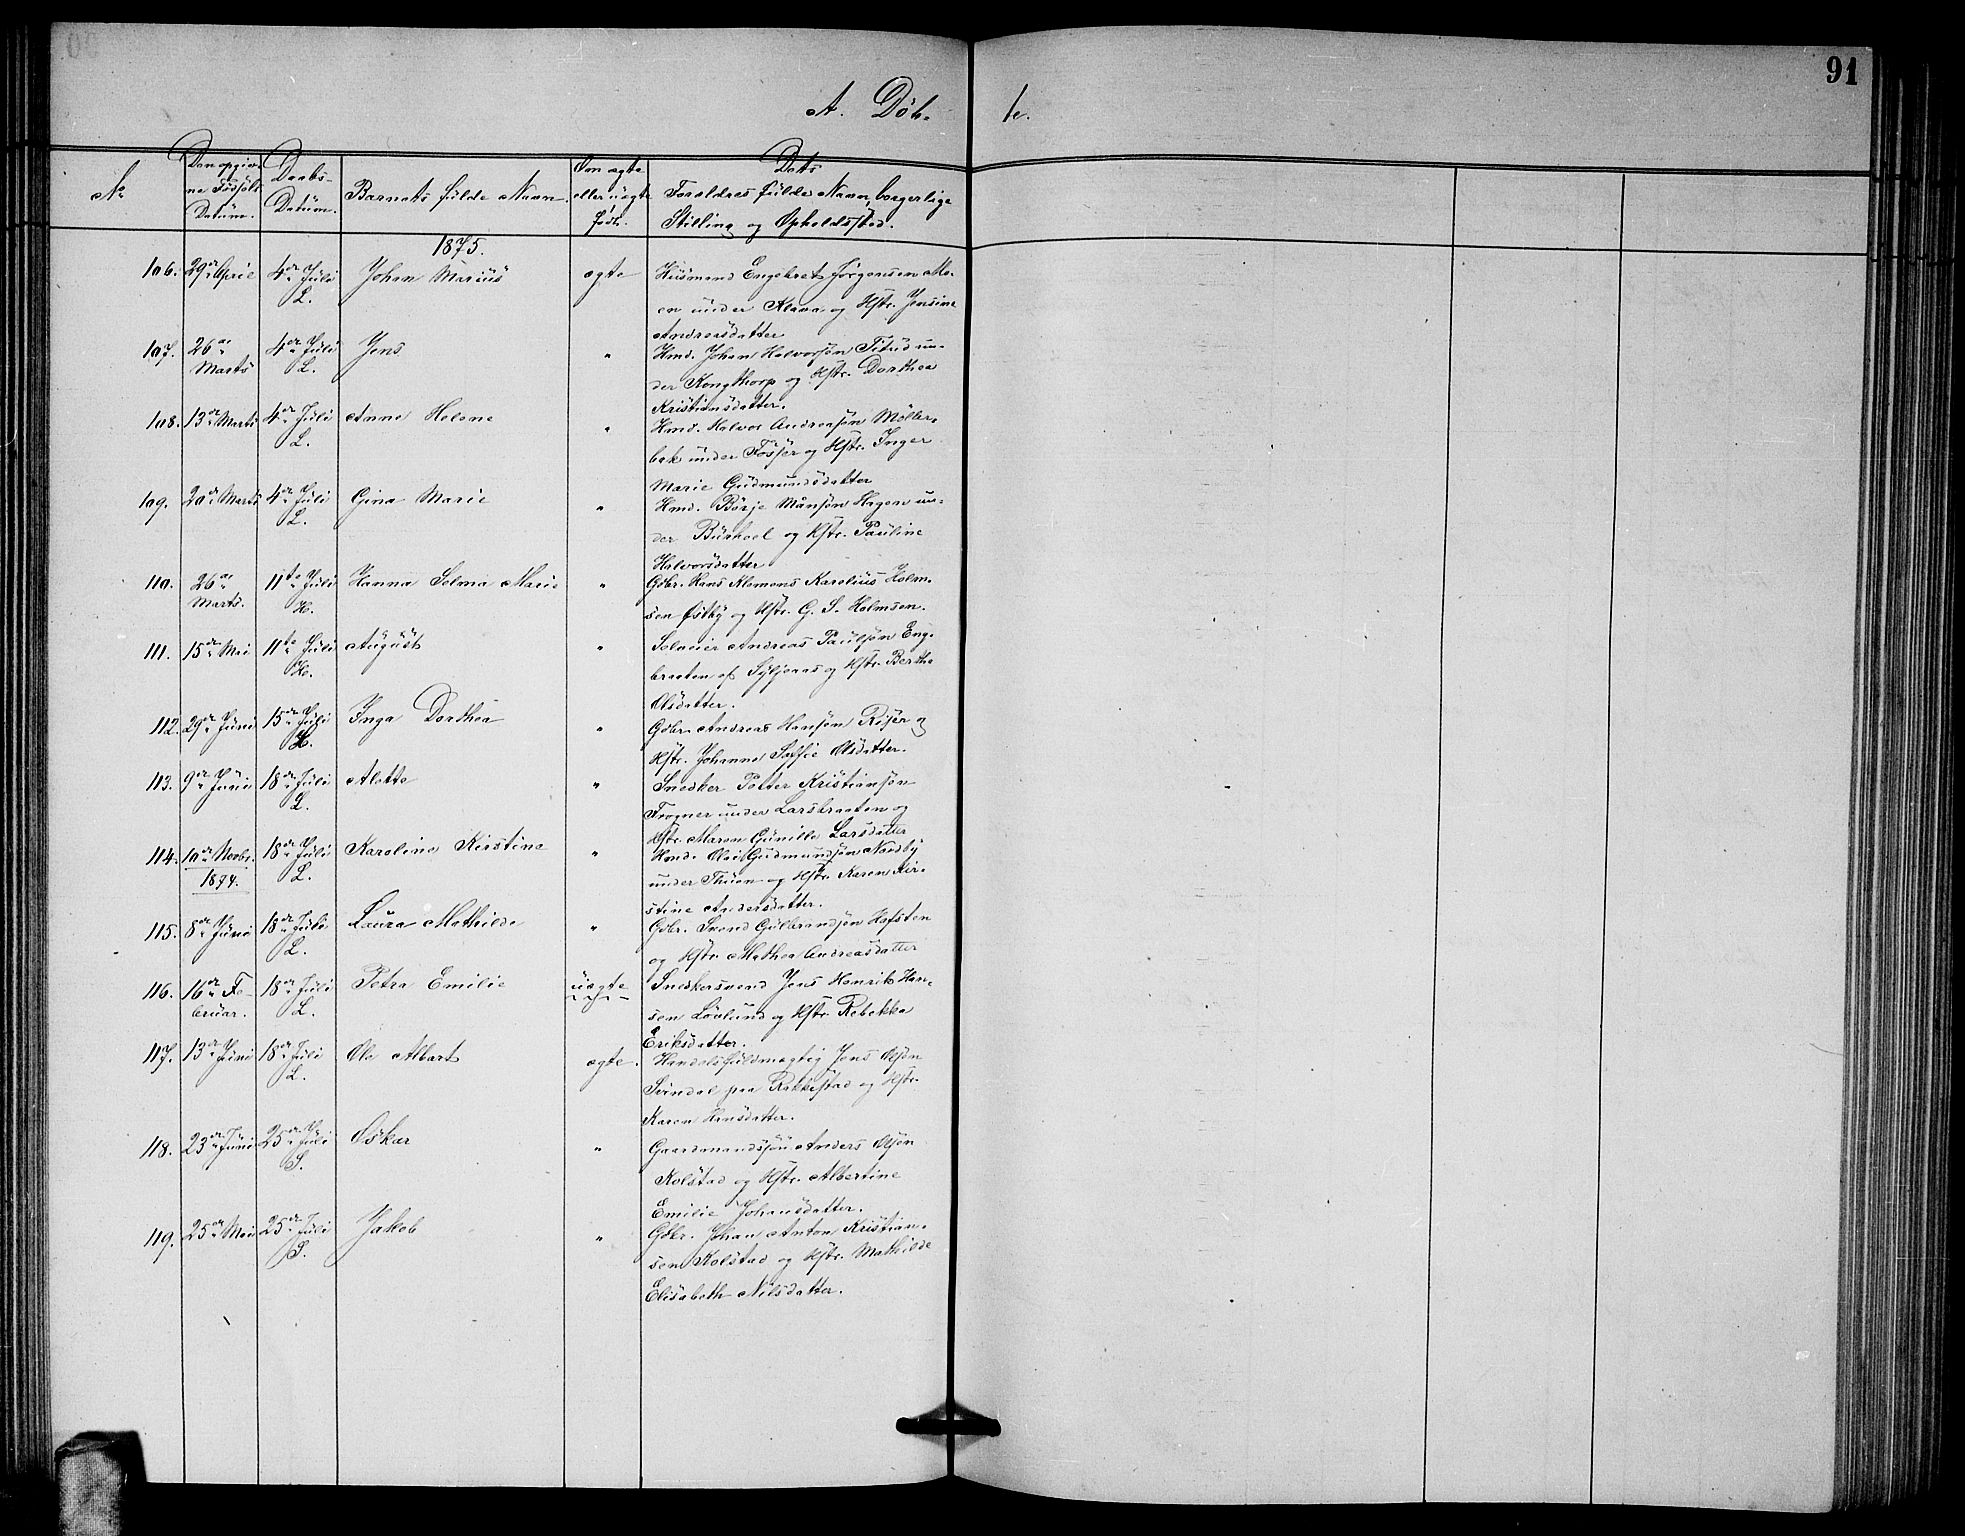 91
A. Döb- te.
No
Den opgiv-
ne Födsels
Datüm.
Daabs-
Datüm.
Barnets fülde Navn.
Om ægte
eller uægte
födt.
Dets
Forældres fülde Navn, borgerlige
Stilling og Opholdsstad.
1875.
106. 29de April 4de Jüli Johan Mariüs ægte Hüsmand Engebret Jörgensen Mo-
L. en under Klava og Hstr. Jensine
Andreasdatter
107. 26de 4de Jüli Jens " Hmd. Johan Halvorsön Titrüd un-
Marts L. der Kongthorp og Hstr. Dorthea
Kristiansdatter.
108. 13de Marts 4de Jüli Anne Helene " Hmd. Halvor Andreasön Möller-
L. bak under Fosser og Hstr. Inger
Marie Güdmundsdatter
109. 20de Marts 4de Jüli Gina Marie " Hmd. Börje Månsön Hagen un-
L. der Bürhol og Hstr. Pauline
Halvorsdatter
110. 26de 11te Jüli Hanna Selma Marie " Gdbr. Hans Klemens Karoliüs Holm-
Marts. H. sen Østby og Hstr. G. S. Holmsen.
111. 15de Mai 11te Jüli Aügüst " Selveier Andreas Paulsön Eng-
H. braaten af Syljeaas og Hstr. Berthe
Olsdatter.
112. 29de Jüni 15de Jüli Inga Dorthea " Gdbr. Andreas Hansön Riser og
H. Hstr. Johanne Soffie Olsdatter.
113. 9de Jüni 18de Jüli Alette " Snedker Petter Kristiansön
L. Frogner under Larsbraaten og
Hstr. Maren Günille Larsdatter
114. 10de Novbr. 18de Jüli Karoline Kirstine " Hmd. Olai Gudmundsön Nordby
1874. L. under Thuen og Hstr. Karen Kir-
stine Andersdatter.
115. 8de Jüni 18de Jüli Laura Mathilde " Gdbr. Svend Gülbrandsön Hafsten
L. og Hstr. Mathea Andreasdatter
116. 16de Fe- 18de Jüli Petra Emilie üægte Snedkersvend Jens Henrik Han-
bruar. L. sen Lövlund og Hstr. Rebekka
Eriksdatter.
117. 13de Jüni 18de Jüli Ole Albart ægte. Handelsfüldmægtig Jens Olsön
L. Svindal paa Rakkestad og Hstr.
Karen Hansdatter.
118. 23de Jüni 25de Jüli Oskar " Gaardmandssön Anders Olsön
S. Kolstad og Hstr. Albertine
Emilie Johansdatter.
119. 25de Mai 25de Jüli Jakob " Gdbr. Johan Anton Kristian-
S. sen Kolstad og Hstr. Mathilde
Elisabeth Nilsdatter.